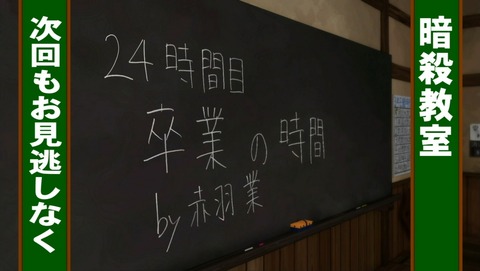 暗殺教室
24時間目
卒業の時間
by赤羽業
次回もお見逃しなく